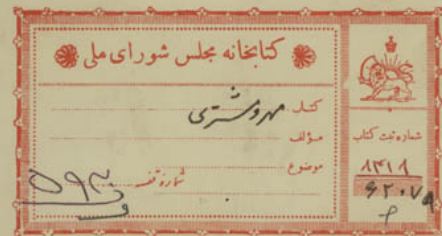 کتابخانه مجلس شورای ملی
کتاب مهر و مشتری
مؤلف
موضوع
شماره قفسه
شماره ثبت کتاب
۸۴۱۸
۶۲۰۷۵